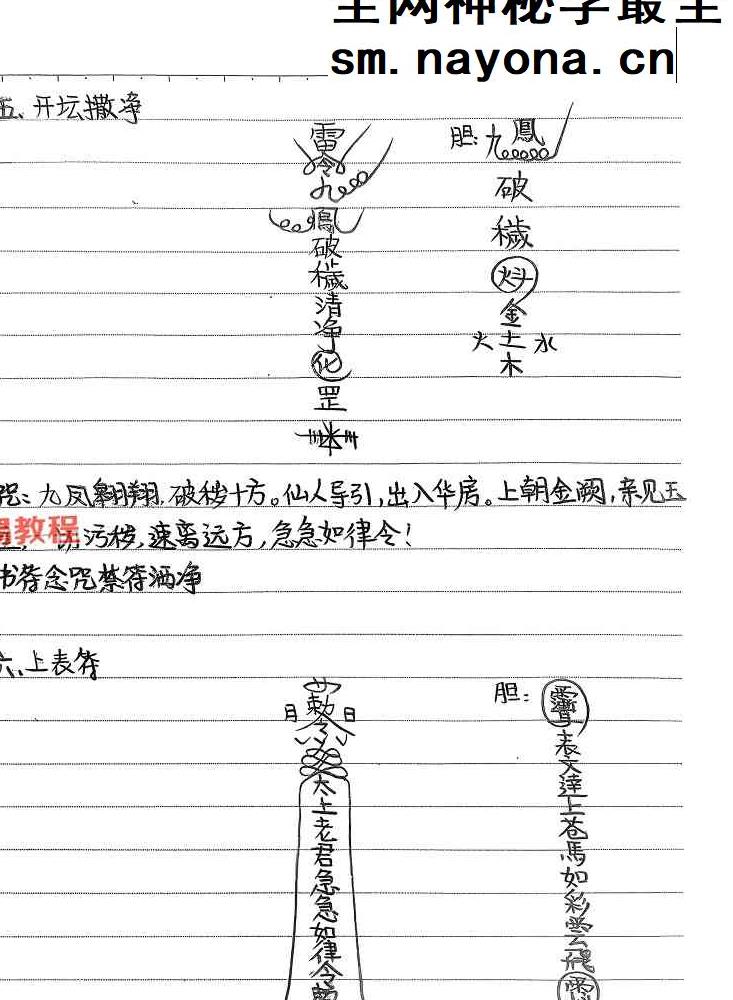 sm.nayona.cn
五、开坛撒净
雷
令
九
鳳
破
穢
清
净
化
罡
胆:九鳳
破
穢
金
火土水
木
咒:九凤翱翔,破秽十方。仙人导引,出入华房。上朝金阙,亲见玉
教程 污秽,速离远方,急急如律令!
书符念咒禁符洒净
六、上表符
敕
月 日
令
太
上
老
君
急
急
如
律
令
胆:
表
文
達
上
苍
馬
如
彩
雲
飛